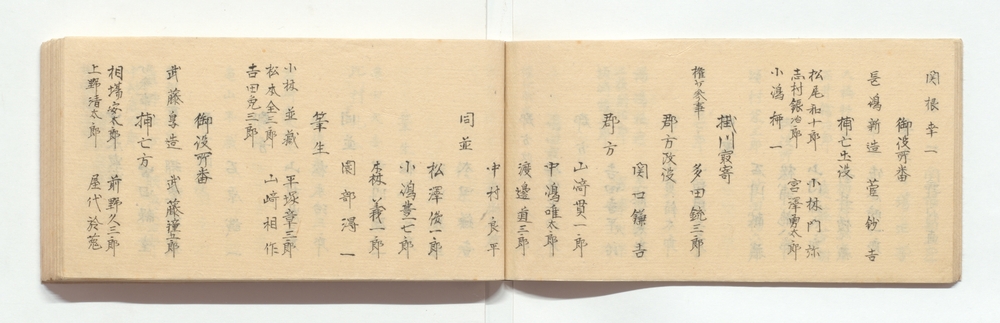 関根幸一
御役所番
長嶋新造 萱 鈔吉
捕亡出役
松尾和十郎 小林門弥
志村銀治郎 宮澤勇太郎
小嶋狆一
掛川最寄
権少参事 多田銃三郎
郡方改役
関口鎌吉
郡方
山﨑貫一郎
中嶋唯太郎
渡邉道三郎
中村良平
同並
松澤俊一郎
小嶋豊七郎
森義一郎
関部潯一
筆生
小林並蔵 平塚章三郎
松本金三郎 山﨑相作
吉田克三郎
御役所番
武藤孝造 武藤鐘五郎
捕亡方
相場安太郎 前野久三郎
上野清太郎 屋代於菟